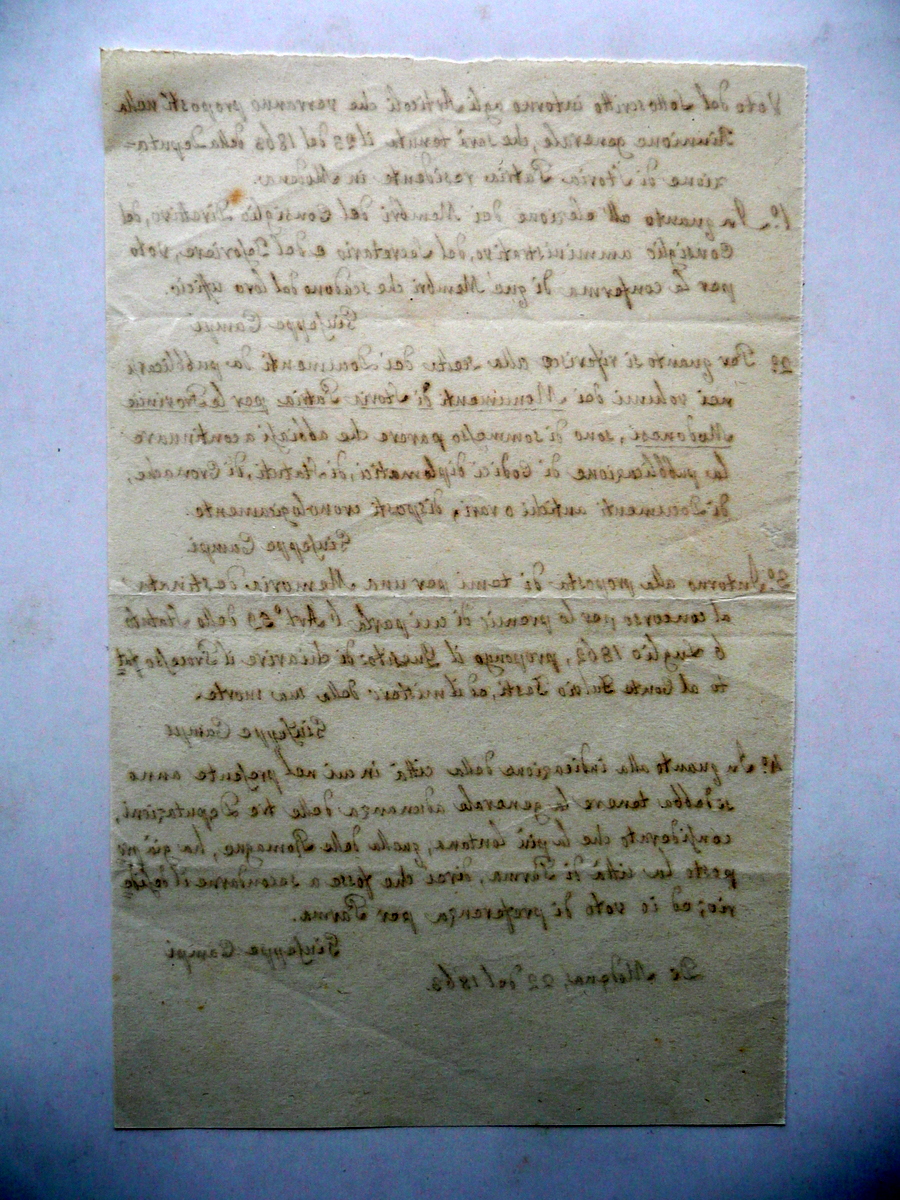 Voto del Sottoscritto intorno agli Articoli che verranno proposti nella
Riunione generale, che sarà tenuta il 23 del 1863 della Deputa=
zione di Storia Patria residente in Modena.
1º. In quanto all'elezione dei Membri del Consiglio Direttivo, del
Consiglio amministrativo, del Secretario e del Tesoriere, voto
per la conferma di que' Membri che scadono dal loro uficio.
Giuseppe Campi
2º. Per quanto si riferisce alla scelta dei Documenti da pubblicarsi
nei volumi dei Monumenti di Storia Patria per le Provincie
Modonesi, sono di sommesso parere che abbiasi a continuare
la pubblicazione di Codici diplomatici, di Statuti, di Cronache,
di Documenti antichi o rari, disposti cronologicamente.
Giuseppe Campi
3º. Intorno alla proposta di temi per una Memoria destinata
al concorso per lo premio; di cui parla l'Artº. 29 dello Statuto
6 Luglio 1862, propongo il Quesito: di chiarire il Processo fat
to al Conte Fulvio Testi, ed il mistero della sua morte.
Giuseppe Campi
4º. In quanto alla indicazione della città in cui nel presente anno
si debba tenere la generale adunanza delle tre Deputazioni,
considerato che la più lontana, quella delle Romagne, ha già pro
posto la città di Parma, direi che fosse a secondarne il deside
rio; ed io voto di preferenza per Parma.
Giuseppe Campi
Modena, 22 del 1863.